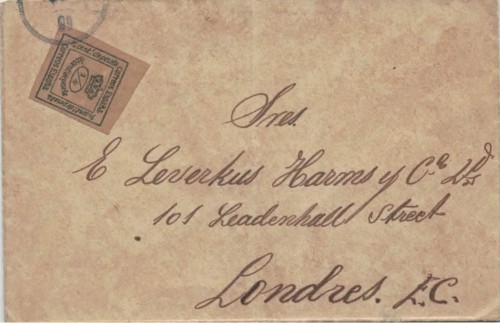 Sres.
E Leverkus Harms y Cª Ld
101 Leadenhall Street
Londres. E.C.